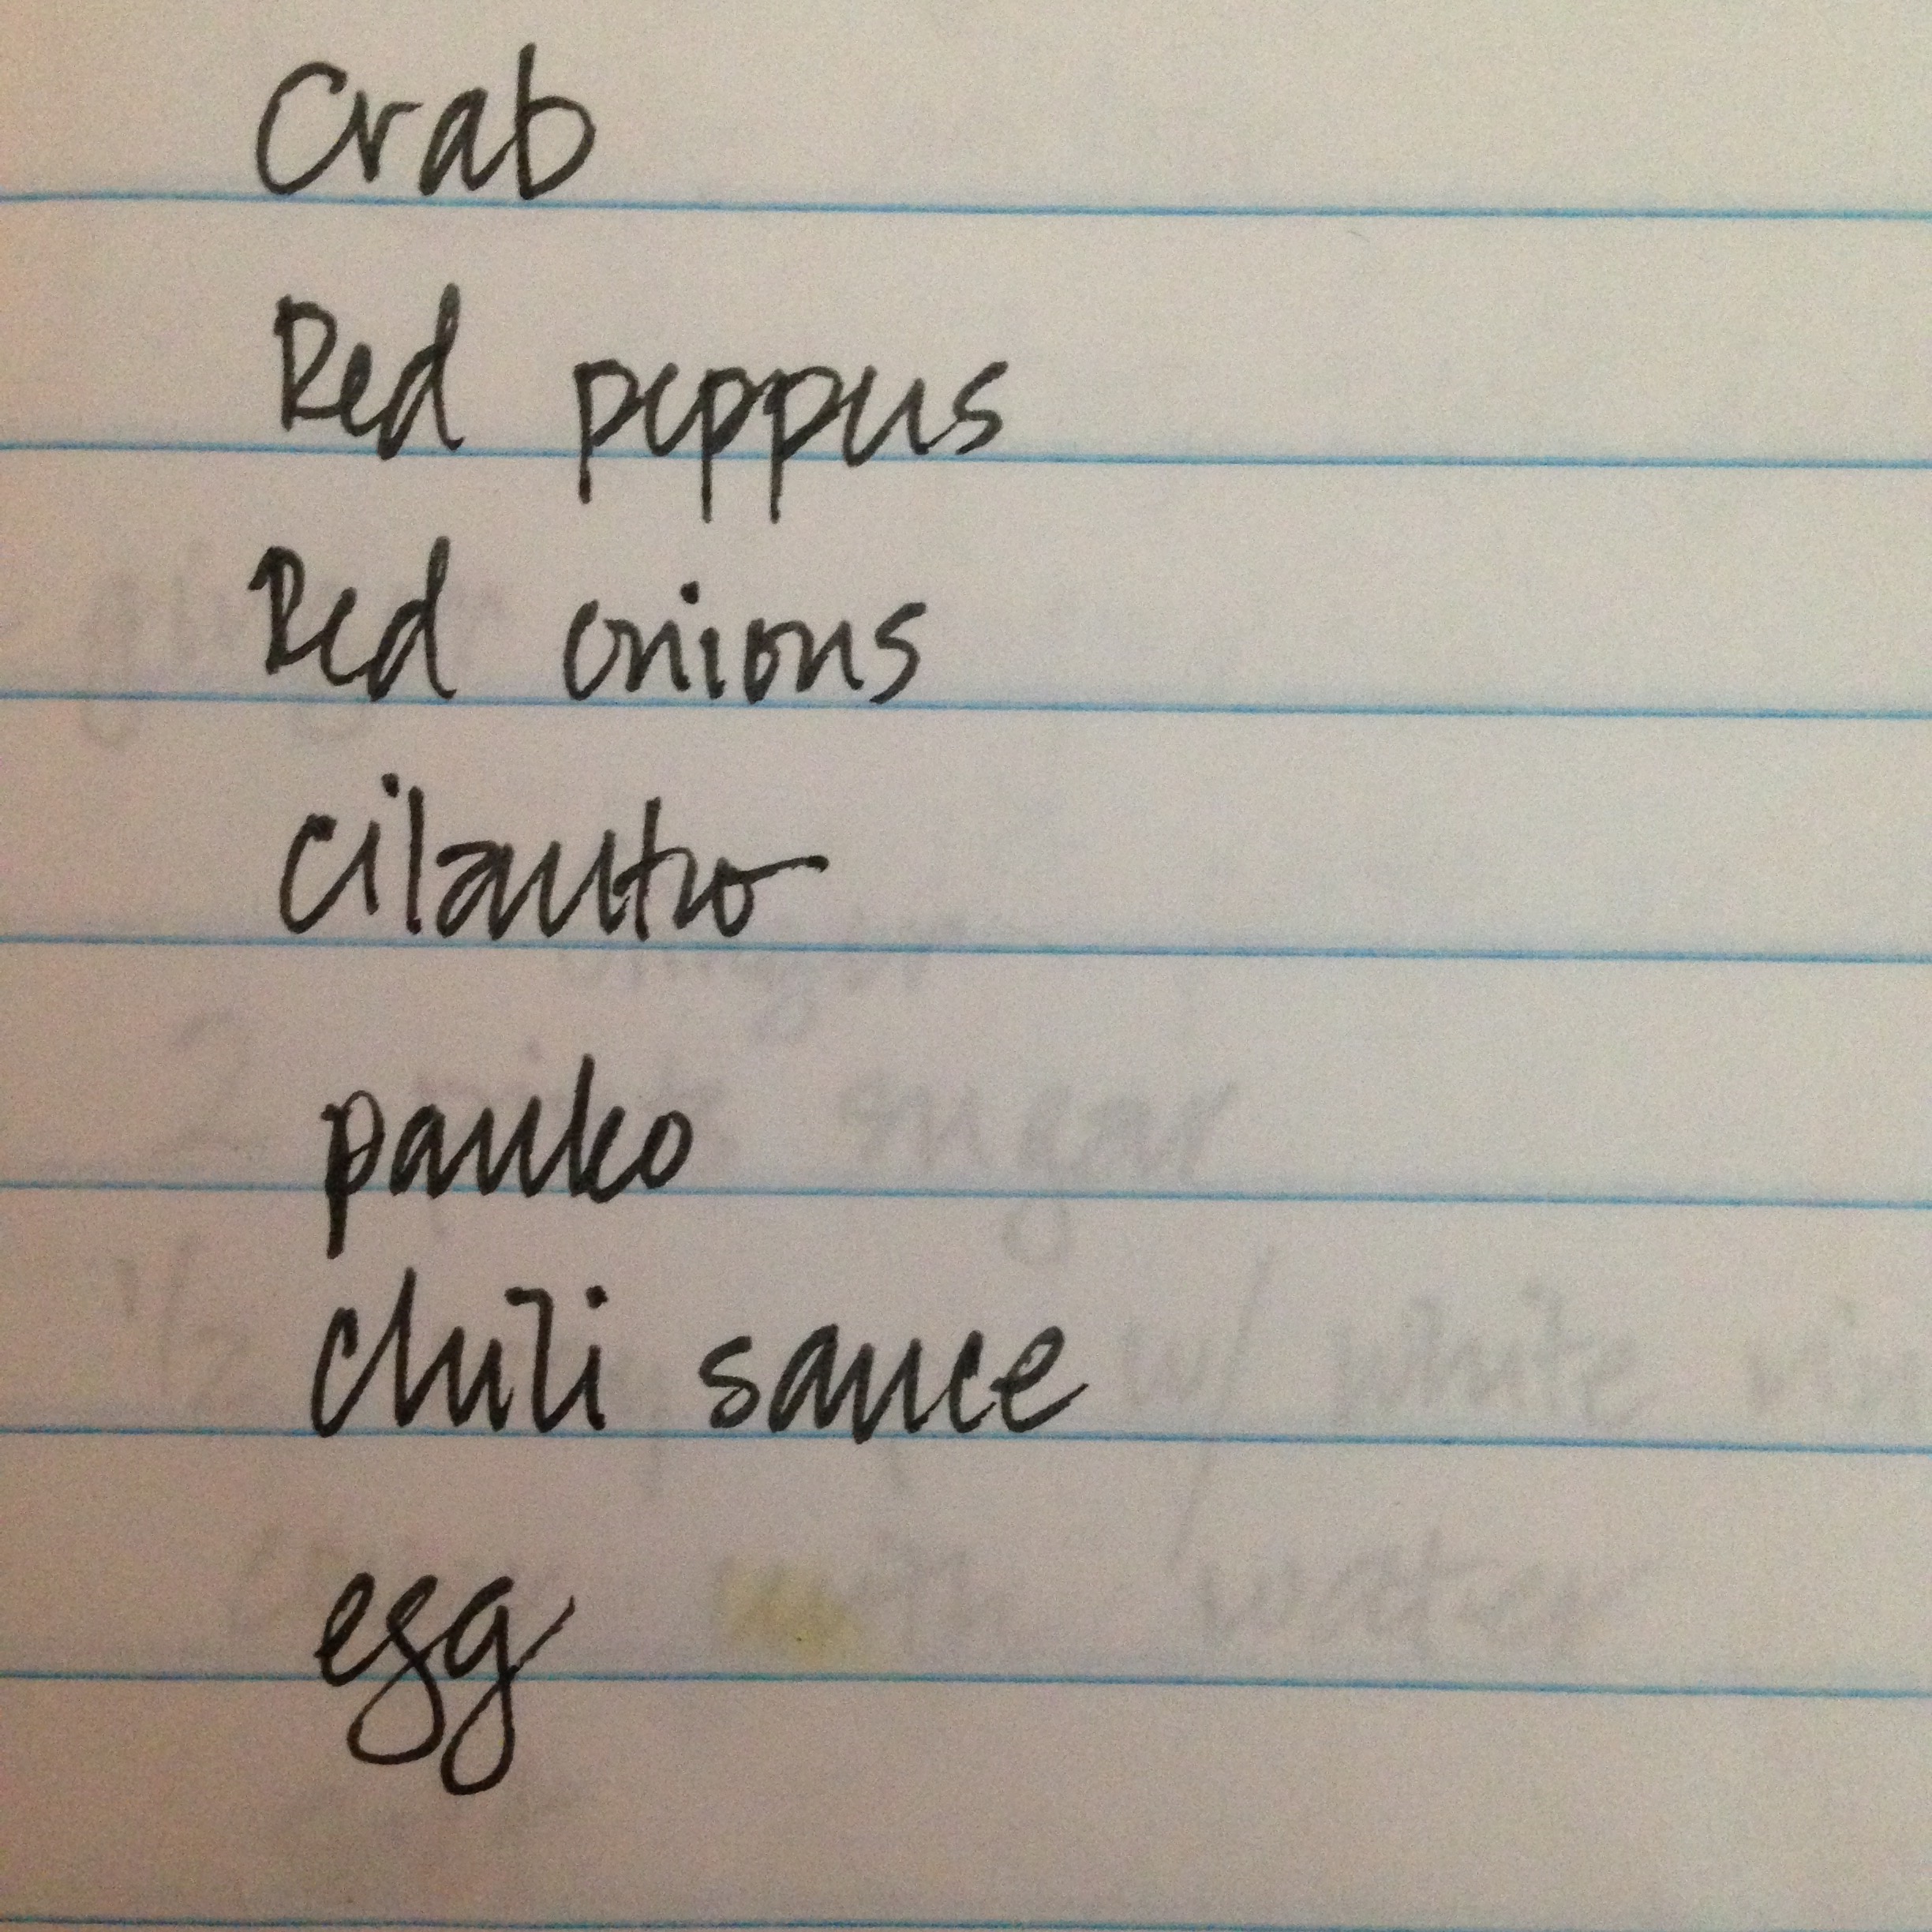 Crab
Red peppers
Red onions
cilantro
panko
chili sauce
egg